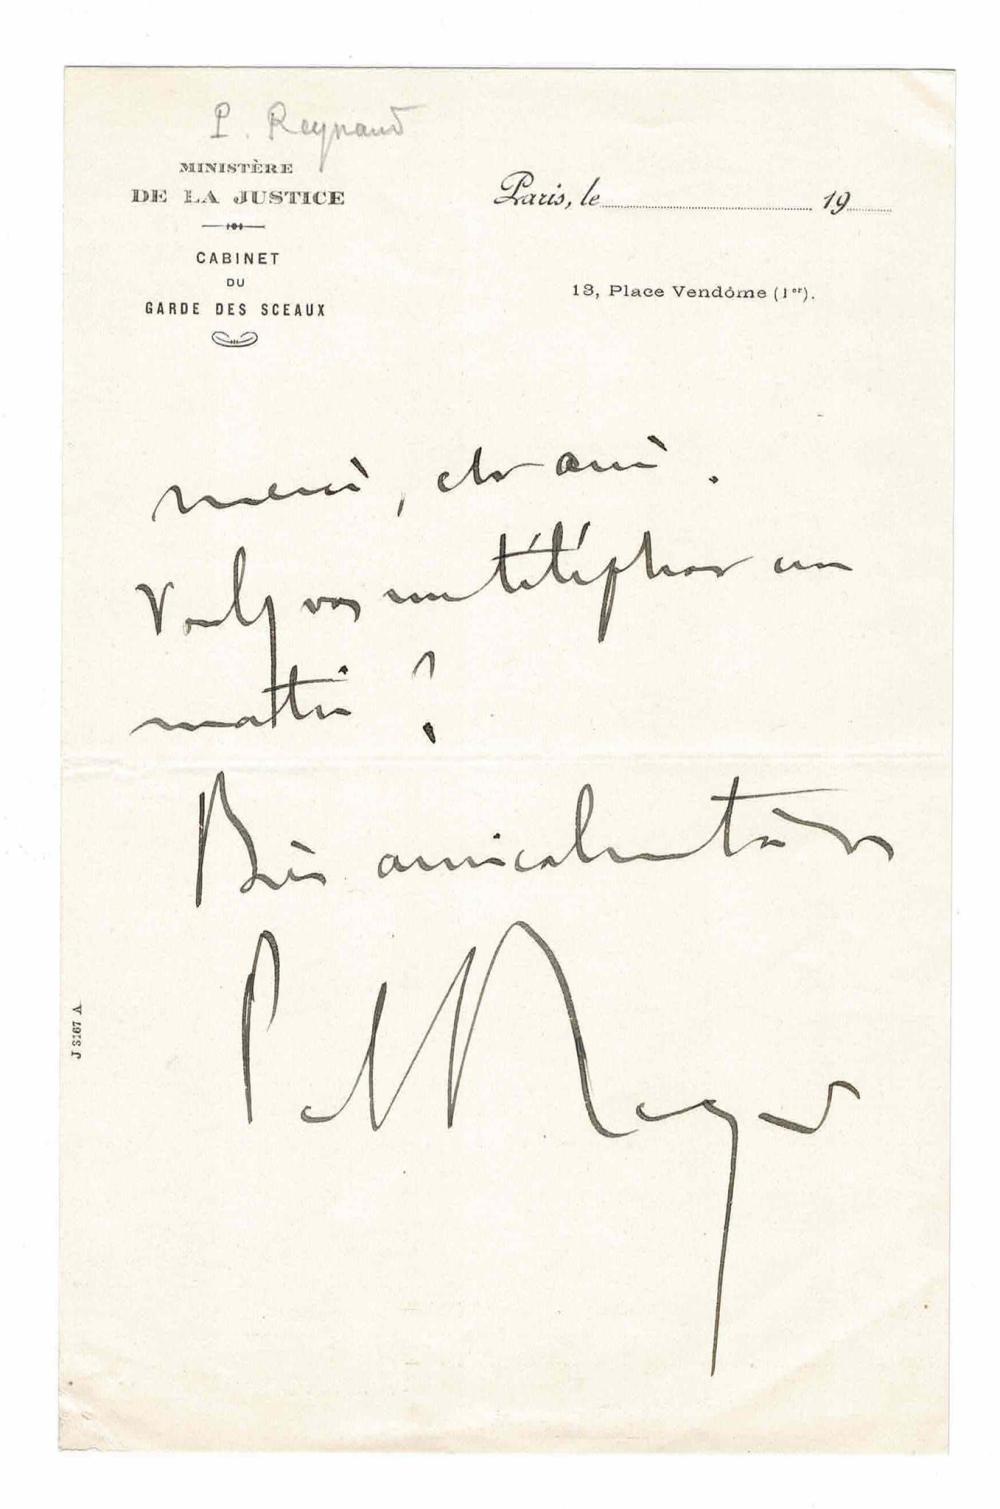 P. Reynaud
MINISTÈRE
DE LA JUSTICE
CABINET
DU
GARDE DES SCEAUX
Paris, le 19
13, Place Vendôme (1er).
merci, cher ami.
Voulez vous me téléphoner un
matin ?
Bien amicalement à vous
Paul Reynaud
J 3167 A